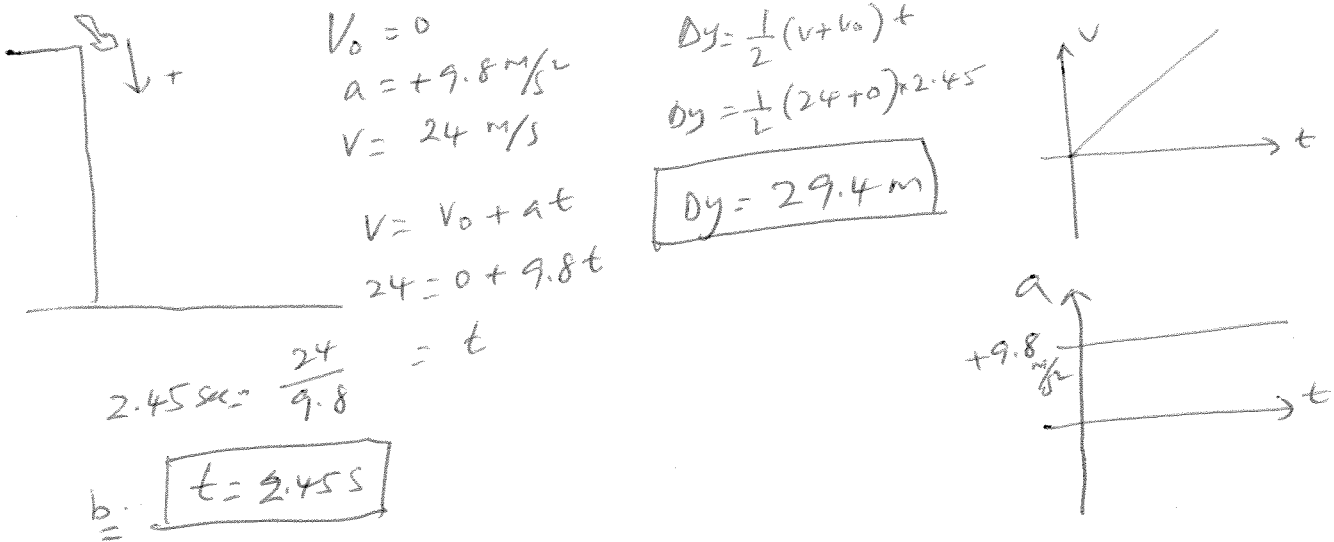 +
V₀ = 0
a = +9.8 m/s²
V = 24 m/s
V = V₀ + at
24 = 0 + 9.8t
2.45 sec = 24/9.8 = t
b. t = 2.45 s
Δy = 1/2 (v + v₀) t
Δy = 1/2 (24 + 0) × 2.45
Δy = 29.4 m
v
t
a
+9.8 m/s²
t